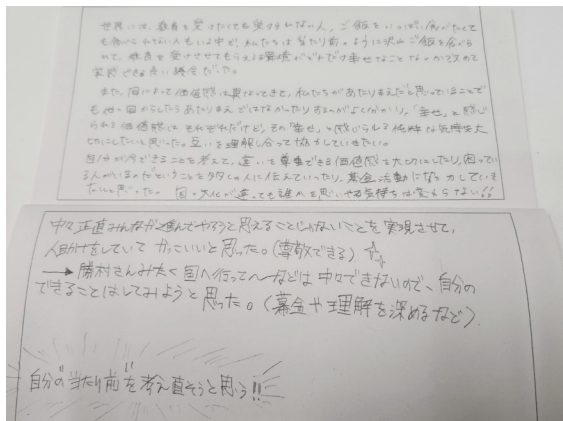 世界には、教育を受けたくても受けられない人、ご飯をいっぱい食べたくても食べられない人もいる中で、私たちは当たり前のように沢山ご飯を食べられて、教育を受けさせてもらえる環境がどれだけ幸せなことなのか改めて実感できる良い機会だった。
また、国によって価値感は異なってきて、私たちがあたりまえだと思っていることでも他の国からしたらあたりまえではなかったりするのがよく分かり、「幸せ」と感じられる価値感はそれぞれだけど、その「幸せ」と感じられる純粋な気持ちを大切にしたいと思った。互いを理解し合って協力していきたい。
自分が今できることを考えて、違いを尊重できる価値感を大切にしたり、困っている人がいるのだということを多くの人に伝えていったり、募金活動に協力していきたいと思った。 国・文化が違っても誰かを思いやる気持ちは変わらない!!
中々正直みんなが進んでやろうと思えることじゃないことを実現させて、
人助けをしていて かっこいいと思った。(尊敬できる)
→ 勝村さんみたく国へ行って〜などは中々できないので、自分の
できることはしてみようと思った。(募金や理解を深めるなど)
自分の"当たり前"を考え直そうと思う!!